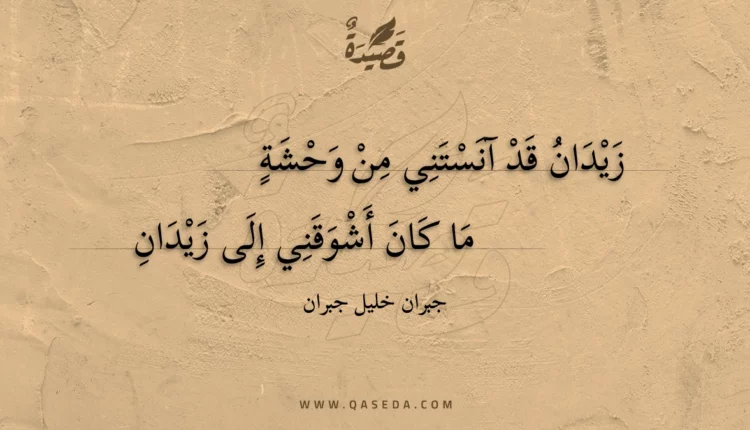 قَصِيدَةٌ
زَيْدَانُ قَدْ آنَسْتَنِي مِنْ وَحْشَةٍ
مَا كَانَ أَشْوَقَنِي إِلَى زَيْدَانِ
جبران خليل جبران
WWW.QASEDA.COM